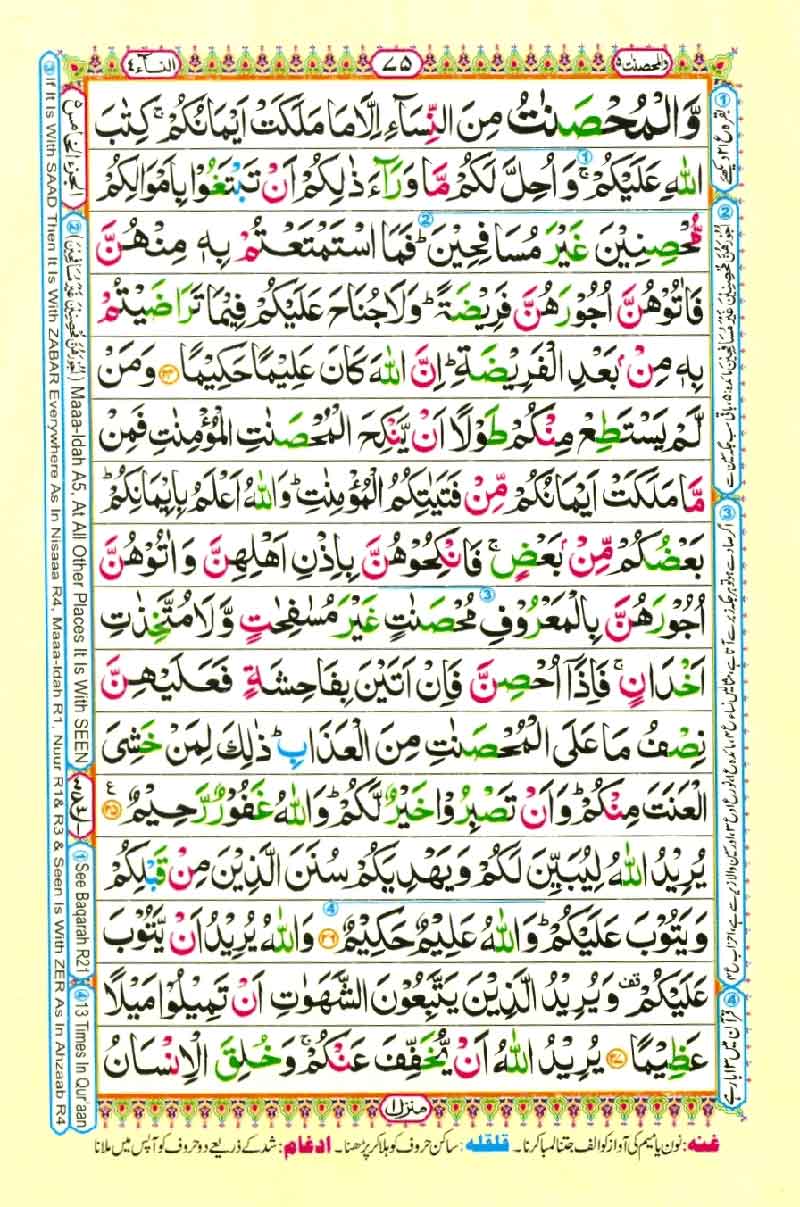 والمحصنت ٥
٧٥
النسآء ٤
وَّالْمُحْصَنٰتُ مِنَ النِّسَآءِ اِلَّا مَا مَلَكَتْ اَيْمَانُكُمْ ۚ كِتٰبَ
اللّٰهِ عَلَيْكُمْ ۚ وَاُحِلَّ لَكُمْ مَّا وَرَآءَ ذٰلِكُمْ اَنْ تَبْتَغُوْا بِاَمْوَالِكُمْ
مُّحْصِنِيْنَ غَيْرَ مُسَافِحِيْنَ ؕ فَمَا اسْتَمْتَعْتُمْ بِهٖ مِنْهُنَّ
فَاٰتُوْهُنَّ اُجُوْرَهُنَّ فَرِيْضَةً ؕ وَلَا جُنَاحَ عَلَيْكُمْ فِيْمَا تَرَاضَيْتُمْ
بِهٖ مِنْۢ بَعْدِ الْفَرِيْضَةِ ؕ اِنَّ اللّٰهَ كَانَ عَلِيْمًا حَكِيْمًا ﴿۲۴﴾ وَمَنْ
لَّمْ يَسْتَطِعْ مِنْكُمْ طَوْلًا اَنْ يَّنْكِحَ الْمُحْصَنٰتِ الْمُؤْمِنٰتِ فَمِنْ
مَّا مَلَكَتْ اَيْمَانُكُمْ مِّنْ فَتَيٰتِكُمُ الْمُؤْمِنٰتِ ؕ وَاللّٰهُ اَعْلَمُ بِاِيْمَانِكُمْ ؕ
بَعْضُكُمْ مِّنْۢ بَعْضٍ ۚ فَانْكِحُوْهُنَّ بِاِذْنِ اَهْلِهِنَّ وَاٰتُوْهُنَّ
اُجُوْرَهُنَّ بِالْمَعْرُوْفِ مُحْصَنٰتٍ غَيْرَ مُسٰفِحٰتٍ وَّلَا مُتَّخِذٰتِ
اَخْدَانٍ ۚ فَاِذَاۤ اُحْصِنَّ فَاِنْ اَتَيْنَ بِفَاحِشَةٍ فَعَلَيْهِنَّ
نِصْفُ مَا عَلَى الْمُحْصَنٰتِ مِنَ الْعَذَابِ ؕ ذٰلِكَ لِمَنْ خَشِيَ
الْعَنَتَ مِنْكُمْ ؕ وَاَنْ تَصْبِرُوْا خَيْرٌ لَّكُمْ ؕ وَاللّٰهُ غَفُوْرٌ رَّحِيْمٌ ﴿۲۵﴾
يُرِيْدُ اللّٰهُ لِيُبَيِّنَ لَكُمْ وَيَهْدِيَكُمْ سُنَنَ الَّذِيْنَ مِنْ قَبْلِكُمْ
وَيَتُوْبَ عَلَيْكُمْ ؕ وَاللّٰهُ عَلِيْمٌ حَكِيْمٌ ﴿۲۶﴾ وَاللّٰهُ يُرِيْدُ اَنْ يَّتُوْبَ
عَلَيْكُمْ ۟ وَيُرِيْدُ الَّذِيْنَ يَتَّبِعُوْنَ الشَّهَوٰتِ اَنْ تَمِيْلُوْا مَيْلًا
عَظِيْمًا ﴿۲۷﴾ يُرِيْدُ اللّٰهُ اَنْ يُّخَفِّفَ عَنْكُمْ ۚ وَخُلِقَ الْاِنْسَانُ
منزل ١
غنه: نون یا میم کی آواز کو الف جتنا لمبا کرنا۔ قلقله: ساکن حروف کو ہلا کر پڑھنا۔ ادغام: شد کے ذریعے دو حروف کو آپس میں ملانا
الجزء الخامس
② (اُجُوْرَهُنَّ مُحْصِنِيْنَ غَيْرَ مُسَافِحِيْنَ) Maaa-Idah A5, At All Other Places It Is With SEEN
① See Baqarah R21
④ 13 Times In Qur'aan
③ If It Is With SAAD Then It Is With ZABAR Everywhere As In Nisaaa R4, Maaa-Idah R1, Nuur R1& R3 & Seen Is With ZER As In Ahzaab R4
④ قرآن میں ۱۳ بار ہے